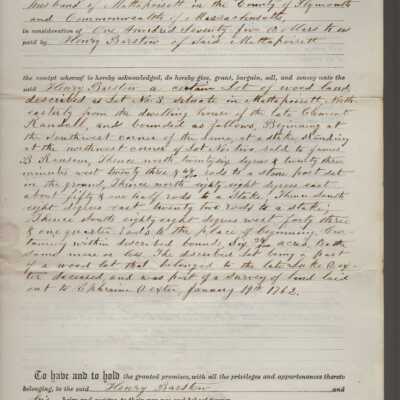 husband of Mattapoisett in the County of Plymouth
and Commonwealth of Massachusetts,
in consideration of One Hundred Seventy five Dollars to us
paid by Henry Barstow of said Mattapoisett
the receipt whereof is hereby acknowledged, do hereby give, grant, bargain, sell, and convey unto the
said Henry Barstow a certain Lot of wood land
described as Lot No 3, situate in Mattapoisett, North
easterly from the dwelling house of the late
Randall, and bounded as follows, Beginning at
the Southwest corner of the same, at a stake standing
at the northwest corner of Lot No. two sold to James
B Ransom, Thence north twenty six degrees & twenty three
minutes west twenty three & rods to a stone post set
in the ground, Thence north eighty eight degrees east
about fifty & one half rods to a Stake, Thence South
eight degrees east twenty two rods to a stake,
Thence South eighty eight degrees west forty three
& one quarter rods to the place of beginning, Con-
taining within described bounds Six acres, Be the
same more or less. The described lot being a part
of a wood lot that belonged to the late Dex-
ter deceased, and was part of a survey of land laid
out to Ephraim Dexter, January 19th 1762.
To have and to hold the granted premises, with all the privileges and appurtenances thereto
belonging, to the said Henry Barstow and
his heirs and assigns, to their own use and behoof forever.